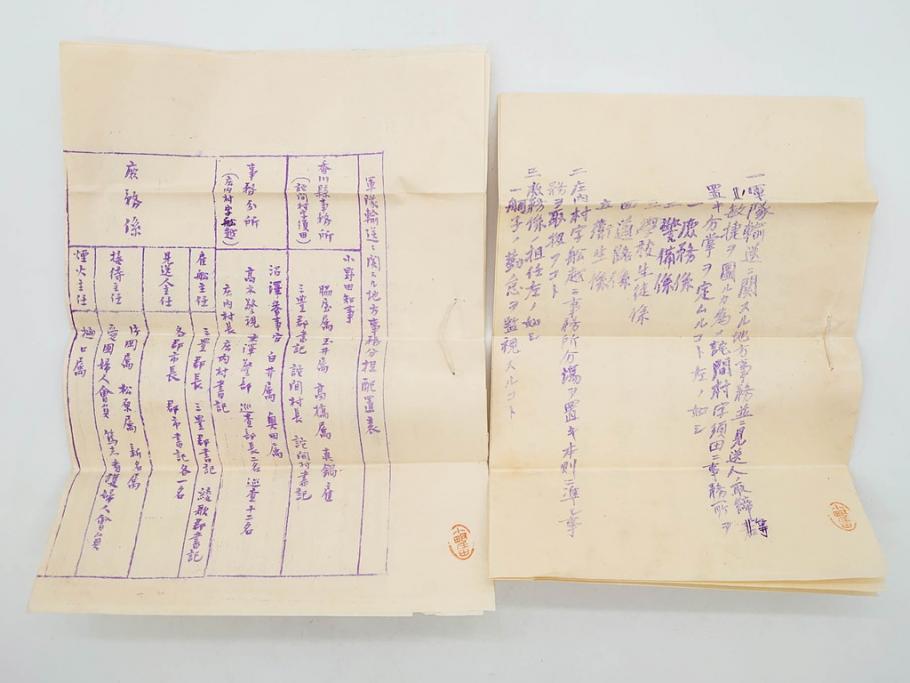 一軍隊輸送ニ関スル地方事務並ニ見送人取締等
敏捷ヲ圖ルカ為メ詫間村字須田ニ事務所ヲ
置キ分掌ヲ定ムルコト左ノ如シ
一 庶務係
二 警備係
三 學校生徒係
四 道路係
五 衛生係
二 庄内村字船越ニ事務所分場ヲ置キ本則ニ準シ事
務ヲ取扱フコト
三 庶務係ノ担任左ノ如シ
一 舸子ノ勤怠ヲ監視スルコト
軍隊輸送ニ関スル地方事務分担配置表
香川縣事務所
(詫間村字須田)
小野田知事
脇屋属 玉井属 高橋属 真鍋雇
三豊郡書記 詫間村長 詫間村書記
事務分所
(庄内村字船越)
沼澤参事官 白井属 奥田属
高木警視 警部 巡査部長二名 巡査十二名
庄内村長 庄内村書記
庶務係
雇船主任
三豊郡長 三豊郡書記 綾歌郡書記
見送人主任
各郡市長 郡市書記各一名
接待主任
片岡属 松原属 新名属
愛國婦人會員 篤志看護婦人會員
煙火主任
樋口属